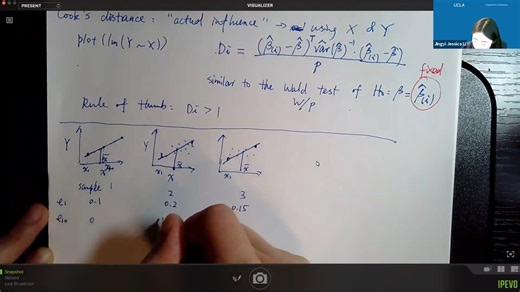 PRESENT
VISUALIZER
UCLA
PRESENT
Cook's distance: "actual influence" → using X & Y
plot(lm(Y~X))
Di = (β̂(i) − β̂)ᵀ V̂ar(β̂)⁻¹ (β̂(i) − β̂) / p
fixed
similar to the Wald test of H₀: β = β̂(i)
w/p
Rule of thumb: Di > 1
Y Y
x₁ x̄ x₁ x̄ x₁ x̄
sample 1 2 3
e₁ 0.1 0.2 0.15
e₁₀ 0
Snapshot
Record
Live Broadcast
IPEVO